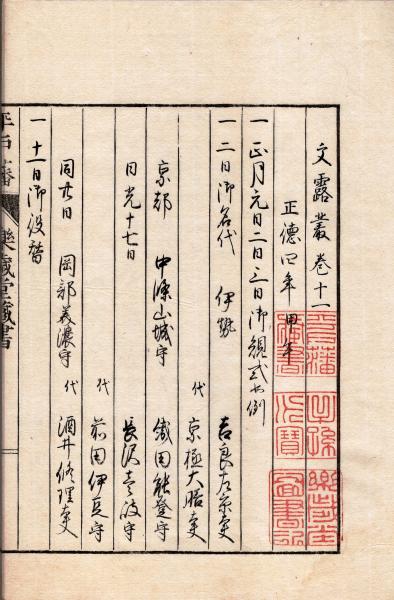 文露叢巻十一
正徳四年 甲午
一 正月元日二日三日御規式如例
一 二日御名代 伊勢 吉良左京大夫
代 京極大膳大夫
京都 中條山城守 織田能登守
日光十七日 長沢壱岐守
代 前田伊豆守
同廿日 岡部美濃守 代 酒井修理大夫
一 十一日御役替
平戸藩 楽歳堂蔵書